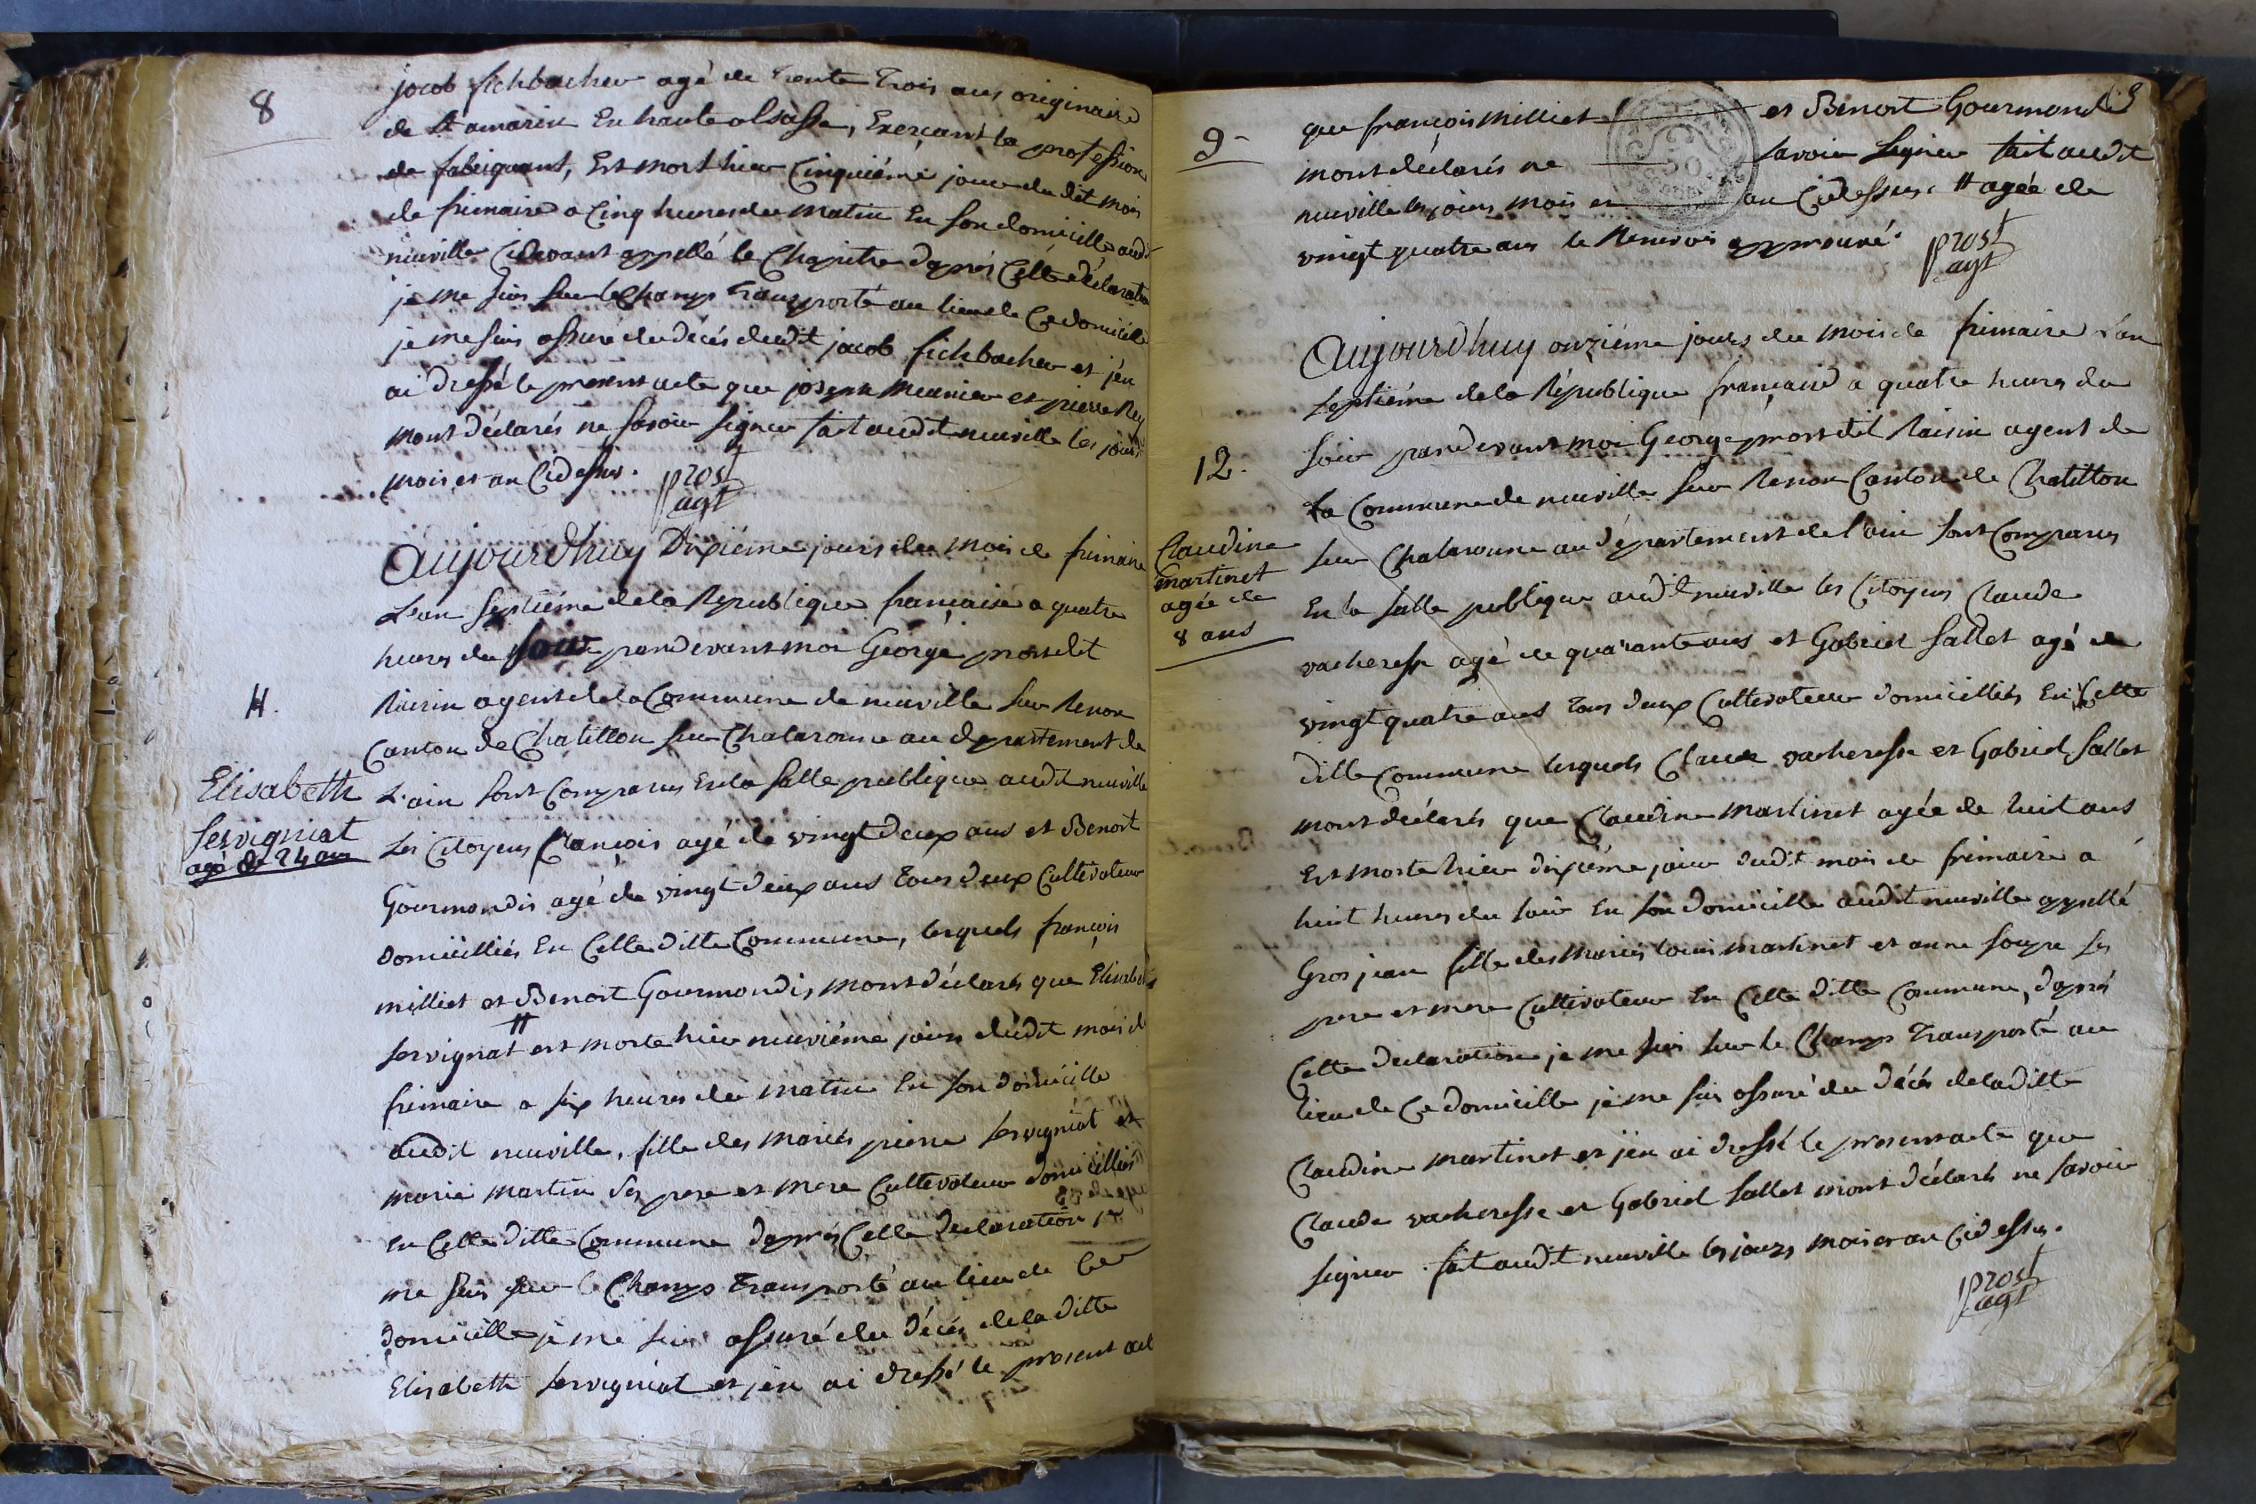 8
jacob fichbacher agé de trente trois ans originaire
de St amarin En haute alsasse, Exerçant la profession
de fabriquant, Est mort hier Cinquiéme jour du dit mois
de frimaire a Cinq heures du matin En son domicille audit
neuville Cidevant appellé le Chapitre d'aprés Cette déclaration
je me suis sur le Champs transporté au lieu de Ce domicille
je me suis assure du décés dudit jacob fichbacher et j'en
ai dressé le present acte que joseph meunier et pierre Rey
m'ont déclarés ne savoir signer fait audit neuville les jours
mois et an Cidessus.
prost
agt
Aujourdhuy Dixiéme jours du mois de frimaire
L'an septiéme de la République française a quatre
heures du soir pardevant moi George prost dit
Raisin agent de la Commune de neuville sur Renon
Canton de Chatillon sur Chalaronne au département de
L'ain sont Comparus En la salle publique audit neuville
Les Citoyens françois agé de vingt deux ans et Benoit
Gourmondis agé de vingt deux ans tous deux Cultivateur
domicilliés En Cette ditte Commune, lesquels françois
milliet et Benoit Gourmondis, m'ont déclarés que Elisabeth
servignat # est morte hier neuviéme jours dudit mois de
frimaire a six heures du matin En son domicille
audit neuville, fille des mariés pierre servigniat et
marie martin ses pere et mere Cultivateur domicilliés
En Cette ditte Commune d'aprés Cette declaration je
me suis sur le Champs transporté au lieu de Ce
domicille je me suis assuré du décés de la ditte
Elisabeth servigniat et j'en ai dressé le present acte
11.
Elisabeth
servigniat
agé de 24 ans
9
que françois milliet et Benoit Gourmondis
m'ont déclarés ne savoir signer fait audit
neuville les jours mois et an Cidessus. # agée de
vingt quatre ans le Renvois approuvé.
prost
agt
Aujourdhuy onziéme jours du mois de frimaire L'an
septiéme de la République française a quatre heures du
soir pardevant moi George prost dit Raisin agent de
La Commune de neuville sur Renon Canton de Chatillon
sur Chalaronne au département de l'ain sont Comparus
En la salle publique audit neuville les Citoyens Claude
vacheresse agé de quarante ans et Gabriel sallet agé de
vingt quatre ans tous deux Cultivateur domicilliés En Cette
ditte Commune lesquels Claude vacheresse et Gabriel sallet
m'ont déclarés que Claudine martinet agée de huit ans
Est morte hier dixiéme jour dudit mois de frimaire a
huit heures du soir En son domicille audit neuville appellé
Gros jean fille des mariés louis martinet et anne soupe ses
pere et mere Cultivateur En Cette ditte Commune, d'aprés
Cette declaration je me suis sur le Champs transporté au
lieu de Ce domicille je me suis assuré du décés de la ditte
Claudine martinet et j'en ai dressé le present acte que
Claude vacheresse et Gabriel sallet m'ont déclarés ne savoir
signer. fait audit neuville les jours mois et an Cidessus.
prost
agt
12.
Claudine
martinet
agée de
8 ans